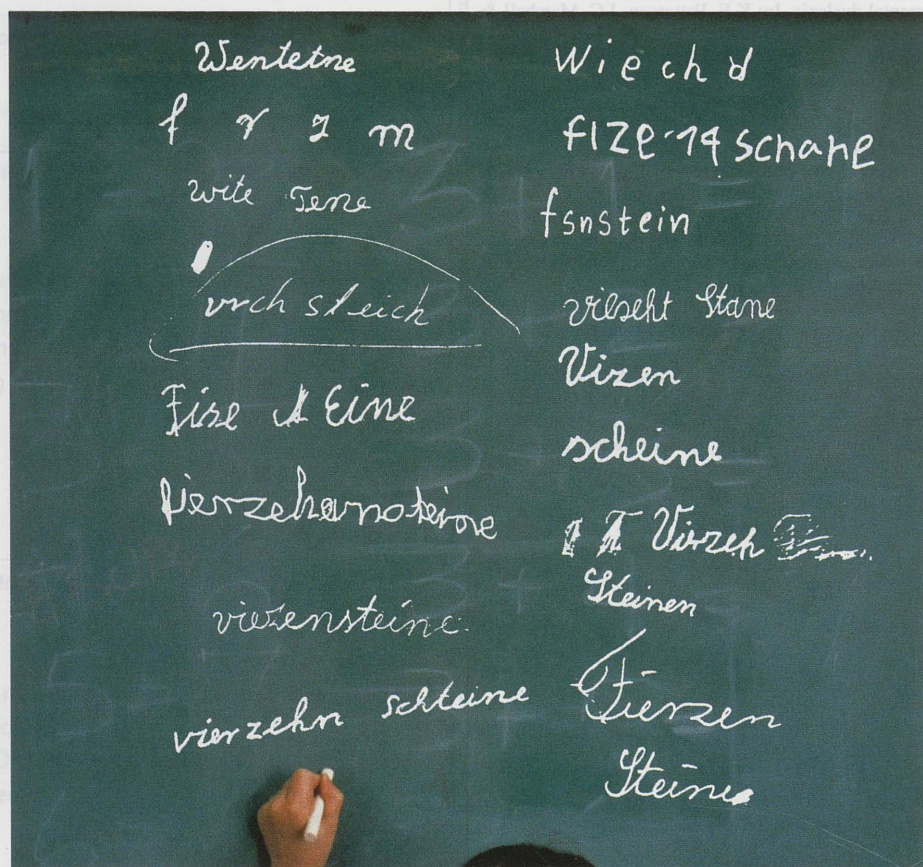 Wentetne
f r z m
wite Tene
vrch steich
Fise Eine
Vierzeharnsteine
viezensteine
vierzehn schteine
Wiechd
fIZE-14 schane
fsnstein
vilseht Stane
Vizen
scheine
Virzeh
Steinen
Fierzen
Steine